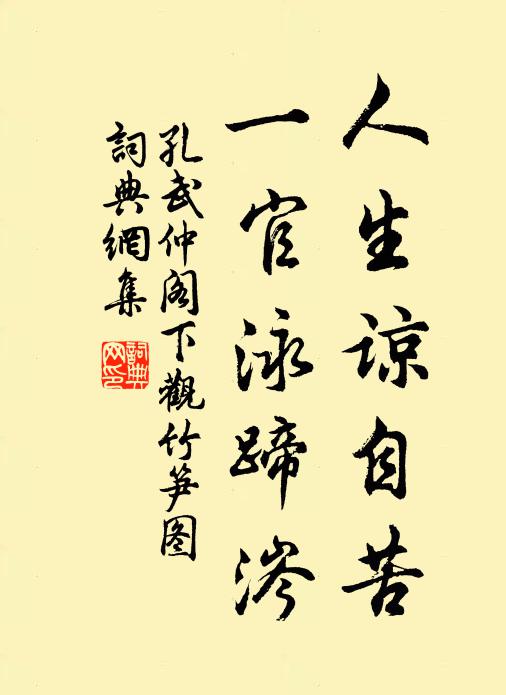 人生谅自苦
一官泳蹄涔
孔武仲阁下觀竹笋图
詞典網集
詞典网印